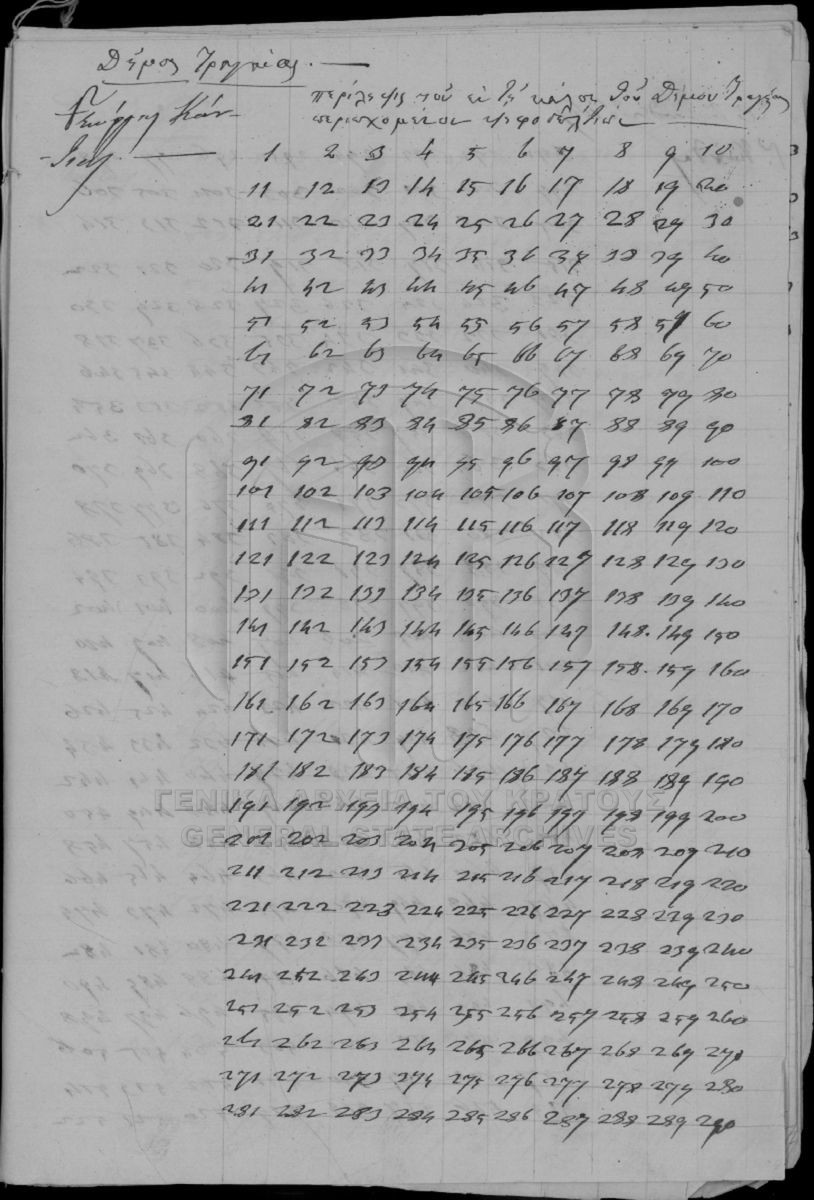 Δῆμος Τραγαίας.
περίληψις τοῦ ἐν τῇ κάλπῃ τοῦ Δήμου Τραγαίας
Γεώργης Κάν-
περιεχομένου
1 2 3 4 5 6 7 8 9 10
11 12 13 14 15 16 17 18 19 20
21 22 23 24 25 26 27 28 29 30
31 32 33 34 35 36 37 38 39 40
41 42 43 44 45 46 47 48 49 50
51 52 53 54 55 56 57 58 59 60
61 62 63 64 65 66 67 68 69 70
71 72 73 74 75 76 77 78 79 80
81 82 83 84 85 86 87 88 89 90
91 92 93 94 95 96 97 98 99 100
101 102 103 104 105 106 107 108 109 110
111 112 113 114 115 116 117 118 119 120
121 122 123 124 125 126 127 128 129 130
131 132 133 134 135 136 137 138 139 140
141 142 143 144 145 146 147 148. 149 150
151 152 153 154 155 156 157 158. 159 160
161 162 163 164 165 166 167 168 169 170
171 172 173 174 175 176 177 178 179 180
181 182 183 184 185 186 187 188 189 190
ΓΕΝΙΚΑ ΑΡΧΕΙΑ ΤΟΥ ΚΡΑΤΟΥΣ
191 192 193 194 195 196 197 198 199 200
GENERAL STATE ARCHIVES
201 202 203 204 205 206 207 208 209 210
211 212 213 214 215 216 217 218 219 220
221 222 223 224 225 226 227 228 229 230
231 232 233 234 235 236 237 238 239 240
241 242 243 244 245 246 247 248 249 250
251 252 253 254 255 256 257 258 259 260
261 262 263 264 265 266 267 268 269 270
271 272 273 274 275 276 277 278 279 280
281 282 283 284 285 286 287 288 289 290